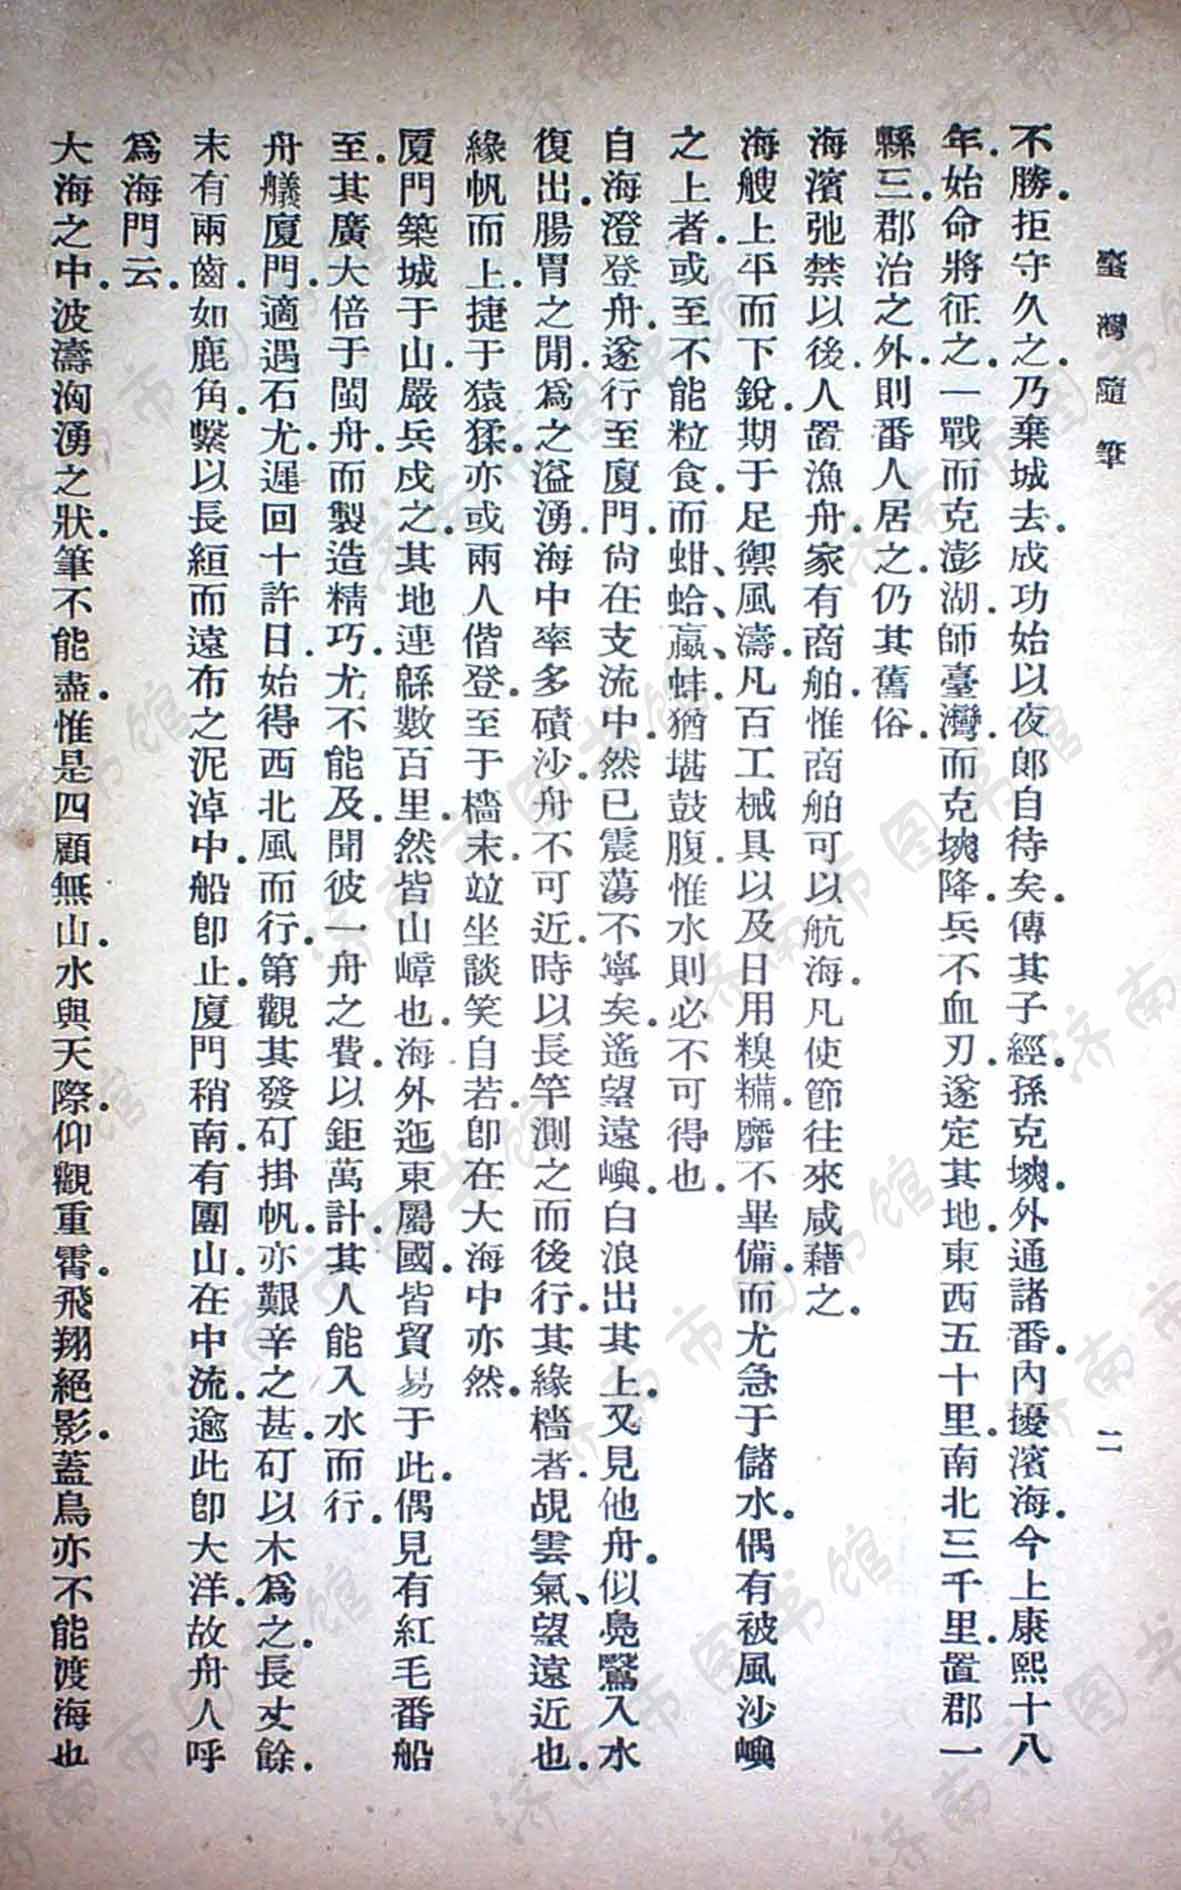 臺灣隨筆 二
不勝.拒守久之.乃棄城去.成功始以夜郎自待矣.傳其子經.孫克塽.外通諸番.內擾濱海.今上康熙十八
年.始命將征之.一戰而克澎湖.師臺灣.而克塽降.兵不血刃.遂定其地.東西五十里.南北三千里.置郡一
縣三.郡治之外.則番人居之.仍其舊俗.
海濱弛禁以後.人置漁舟.家有商舶.惟商舶可以航海.凡使節往來咸藉之.
海艘上平而下銳.期于足禦風濤.凡百工械具以及日用糗糒.靡不畢備.而尤急于儲水.偶有被風沙嶼
之上者.或至不能粒食.而蚶、蛤、蠃、蚌.猶堪鼓腹.惟水則必不可得也.
自海澄登舟.遂行至廈門.尙在支流中.然已震蕩不寧矣.遙望遠嶼.白浪出其上.又見他舟.似鳧鷖入水
復出.腸胃之閒.爲之溢湧.海中率多磧沙.舟不可近.時以長竿測之而後行.其緣檣者.覘雲氣、望遠近也.
緣帆而上.捷于猿猱.亦或兩人偕登.至于檣末.竝坐談笑自若.卽在大海中亦然.
廈門築城于山.嚴兵戍之.其地連緜數百里.然皆山嶂也.海外迤東屬國.皆貿易于此.偶見有紅毛番船
至.其廣大倍于閩舟.而製造精巧.尤不能及.聞彼一舟之費.以鉅萬計.其人能入水而行.
舟艤廈門.適遇石尤.遲回十許日.始得西北風而行.第觀其發矴掛帆.亦艱辛之甚.矴以木爲之.長丈餘.
末有兩齒.如鹿角.繫以長絙而遠布之泥淖中.船卽止.廈門稍南.有團山.在中流.逾此卽大洋.故舟人呼
爲海門云.
大海之中.波濤洶湧之狀.筆不能盡.惟是四顧無山.水與天際.仰觀重霄.飛翔絕影.蓋鳥亦不能渡海也